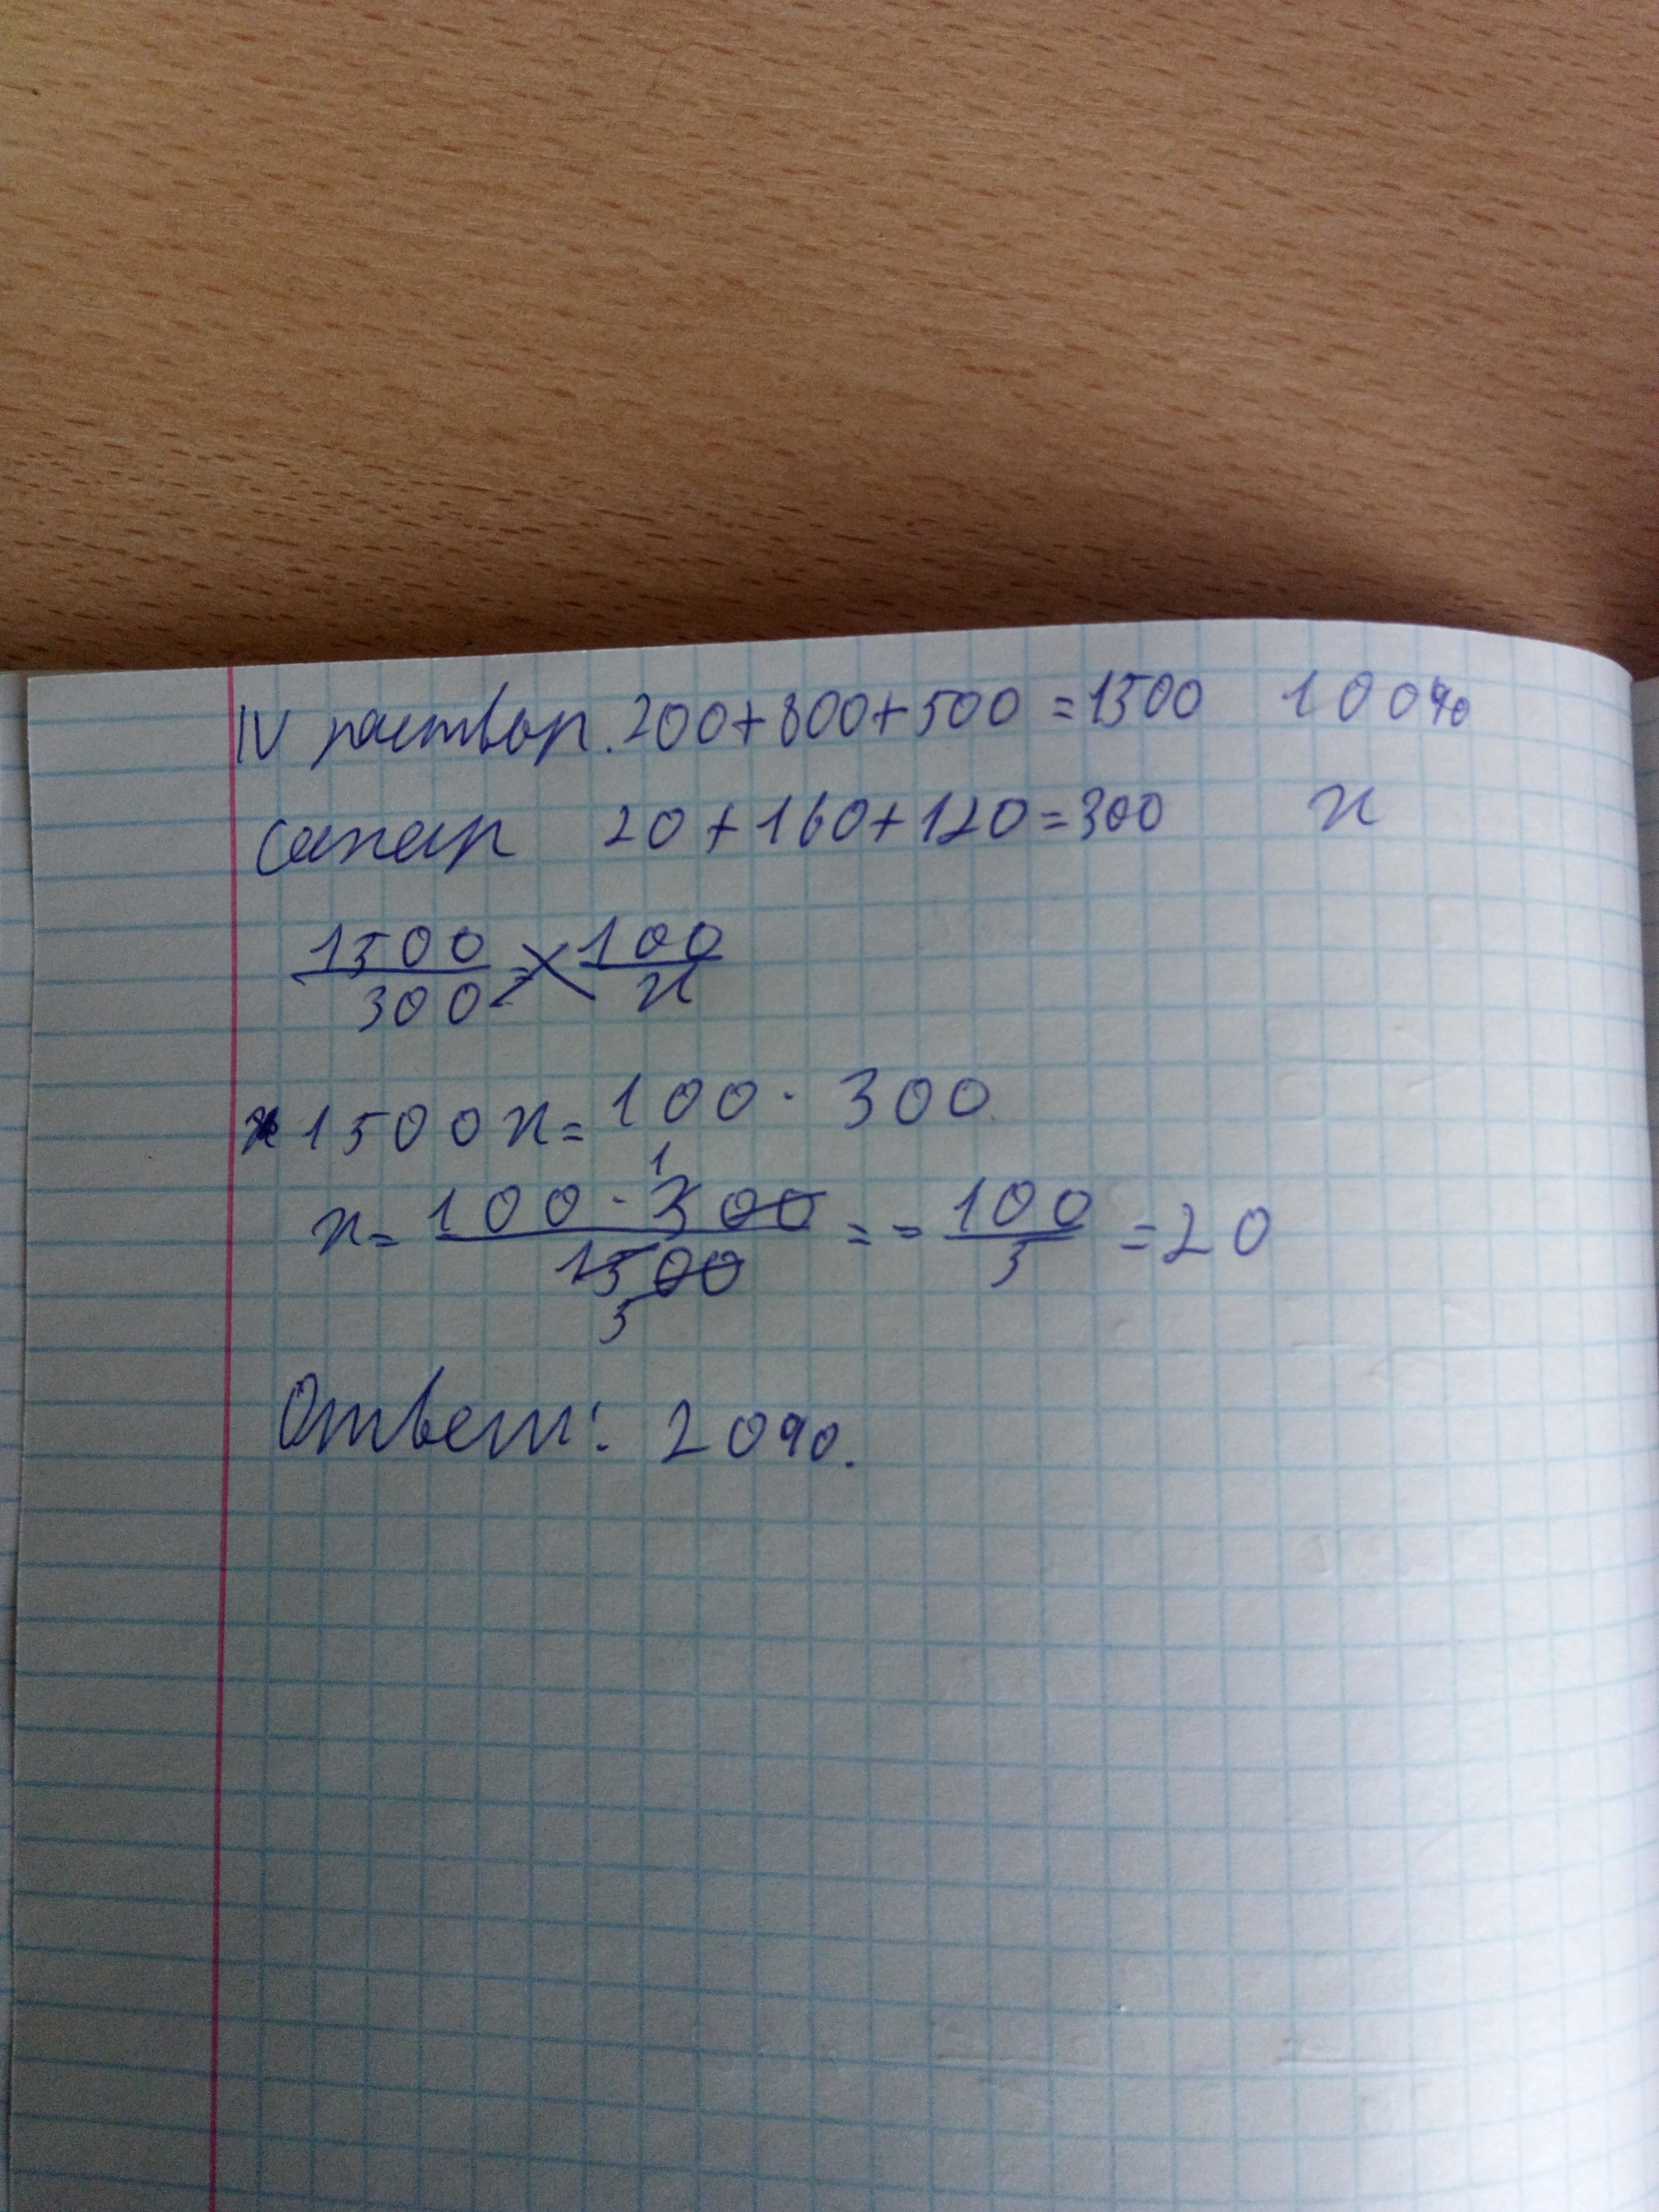 IV раствор. 200+800+500=1500 100%
сахар 20+160+120=300 x
1500/300 = 100/x
1500x=100·300
x= 100·300/1500 == 100/5 =20
1
5
Ответ: 20%.